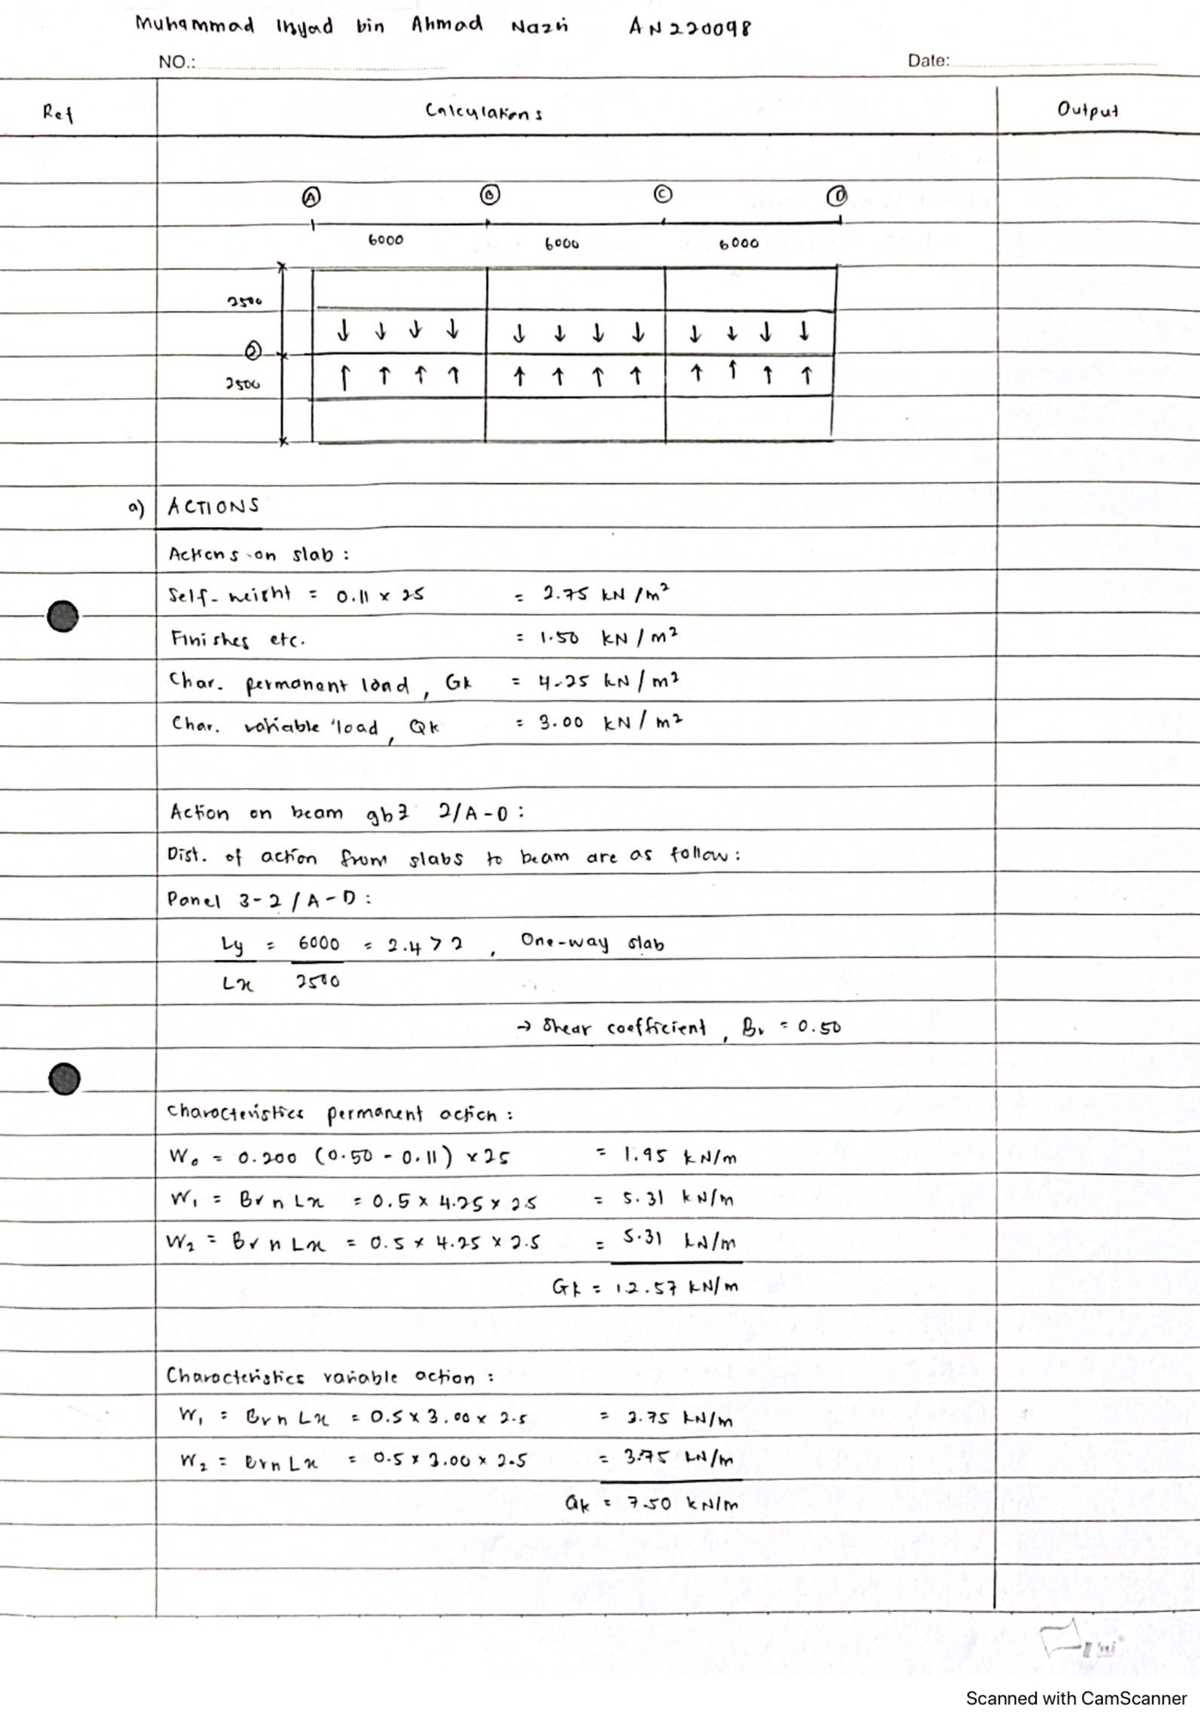 Muhammad Inyad bin Ahmad Nazri AN220098
NO.: Date:
Ref Calculations Output
A B C D
6000 6000 6000
2500
2
2500
a) ACTIONS
Actions on slab :
Self-weight = 0.11 x 25 = 2.75 kN/m²
Finishes etc. = 1.50 kN/m²
Char. permanent load, Gk = 4.25 kN/m²
Char. variable load, Qk = 3.00 kN/m²
Action on beam gb2 2/A-D :
Dist. of action from slabs to beam are as follow :
Panel 3-2 / A-D :
Ly = 6000 = 2.4 > 2, One-way slab
Lx 2500
→ Shear coefficient, Bv = 0.50
Characteristics permanent action :
W₀ = 0.200 (0.50 - 0.11) x 25 = 1.95 kN/m
W₁ = Bv n Lx = 0.5 x 4.25 x 2.5 = 5.31 kN/m
W₂ = Bv n Lx = 0.5 x 4.25 x 2.5 = 5.31 kN/m
Gk = 12.57 kN/m
Characteristics variable action :
W₁ = Bv n Lx = 0.5 x 3.00 x 2.5 = 3.75 kN/m
W₂ = Bv n Lx = 0.5 x 3.00 x 2.5 = 3.75 kN/m
Qk = 7.50 kN/m
Scanned with CamScanner